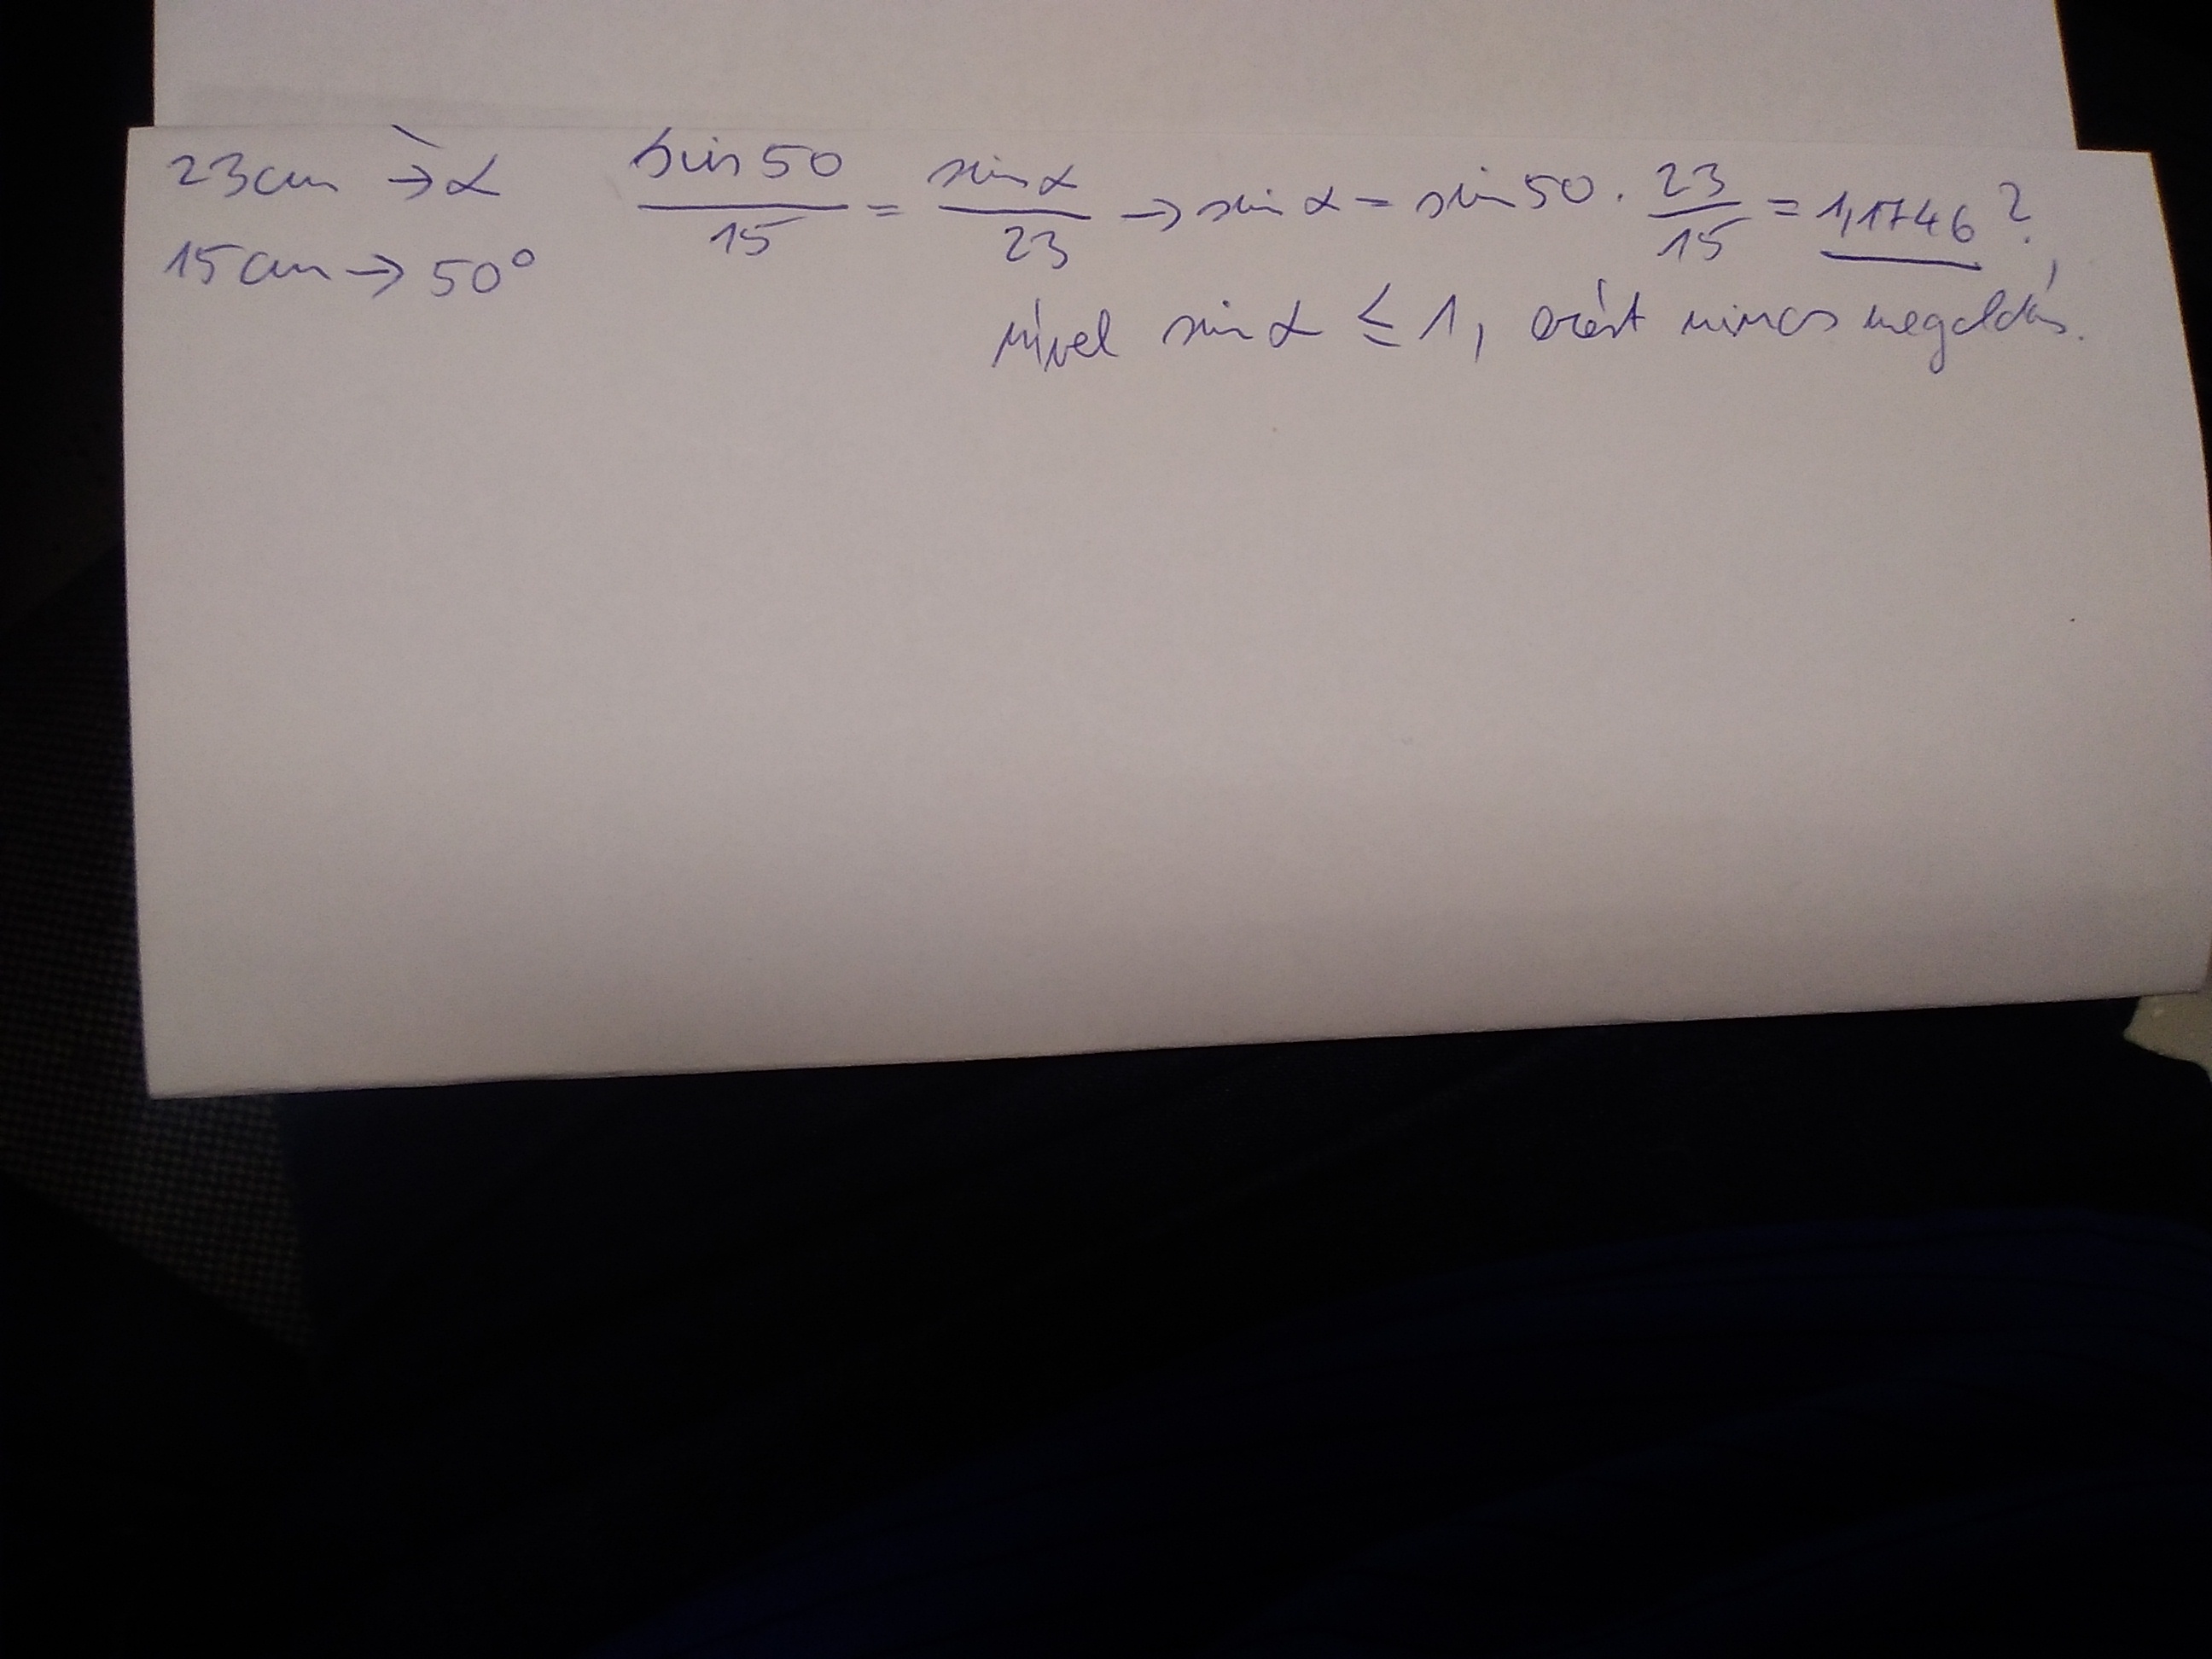 23cm → α sin 50 / 15 = sin α / 23 → sin α = sin 50 · 23 / 15 = 1,1746 ?
15cm → 50°
mivel sin α ≤ 1, ezért nincs megoldás.